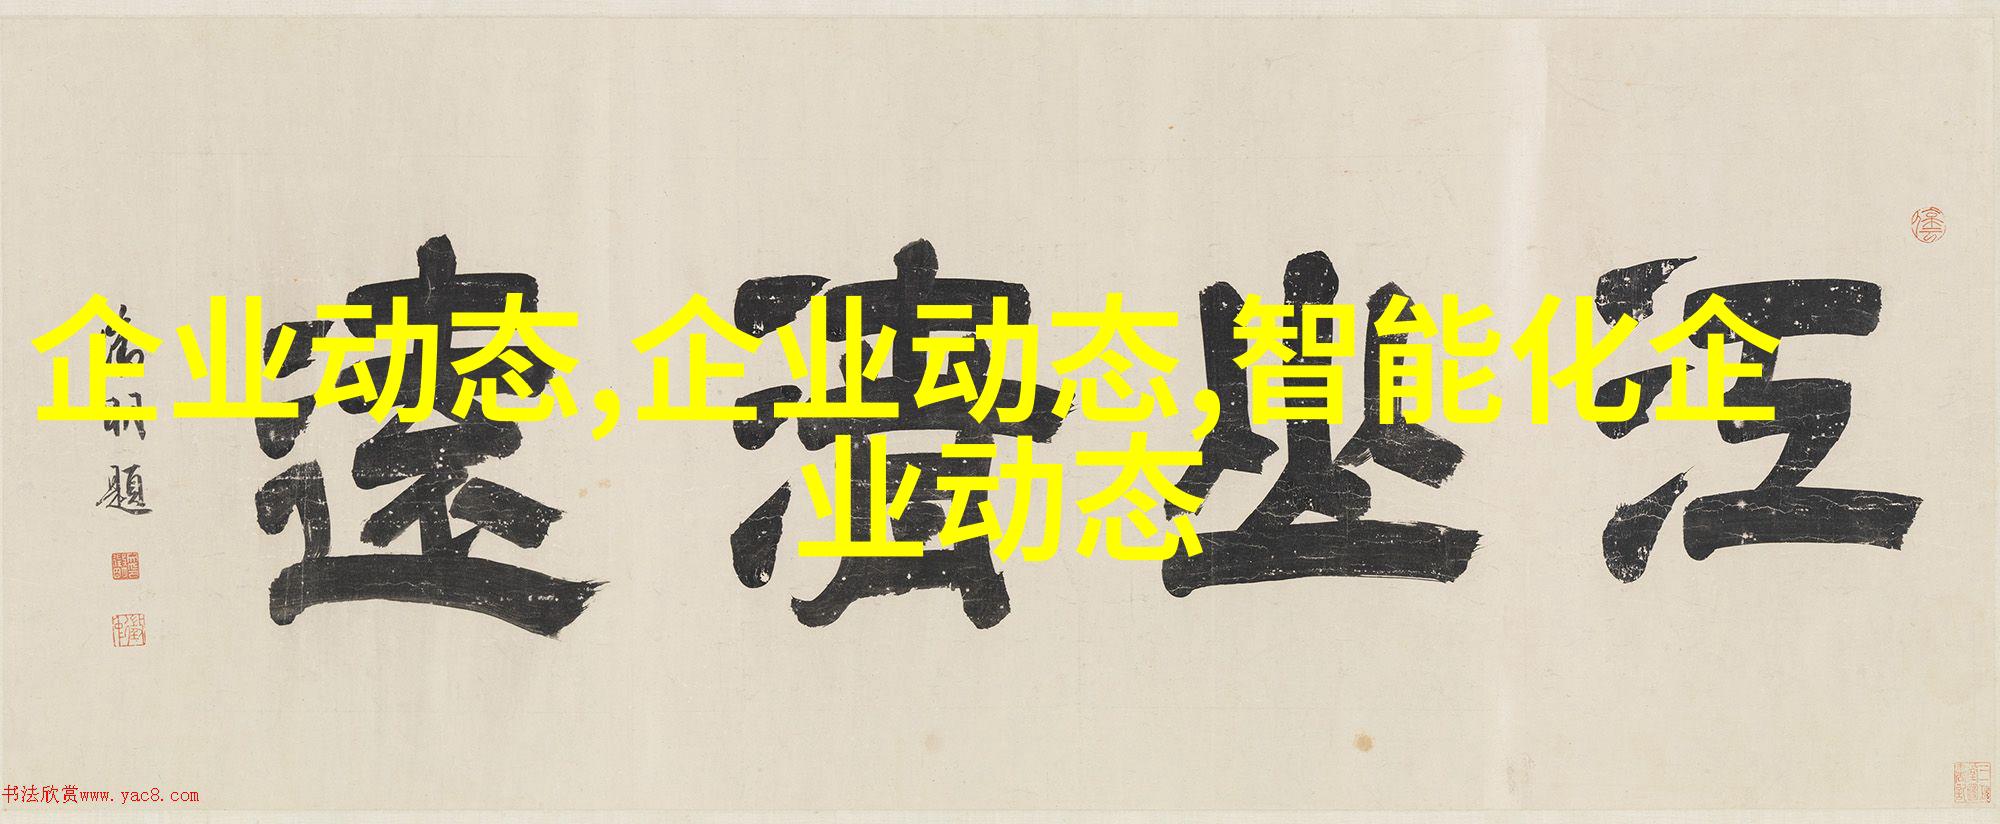 企业动态,企业动态,智能化企
业动态
江山清遠
徵明題
书法欣赏www.yac8.com